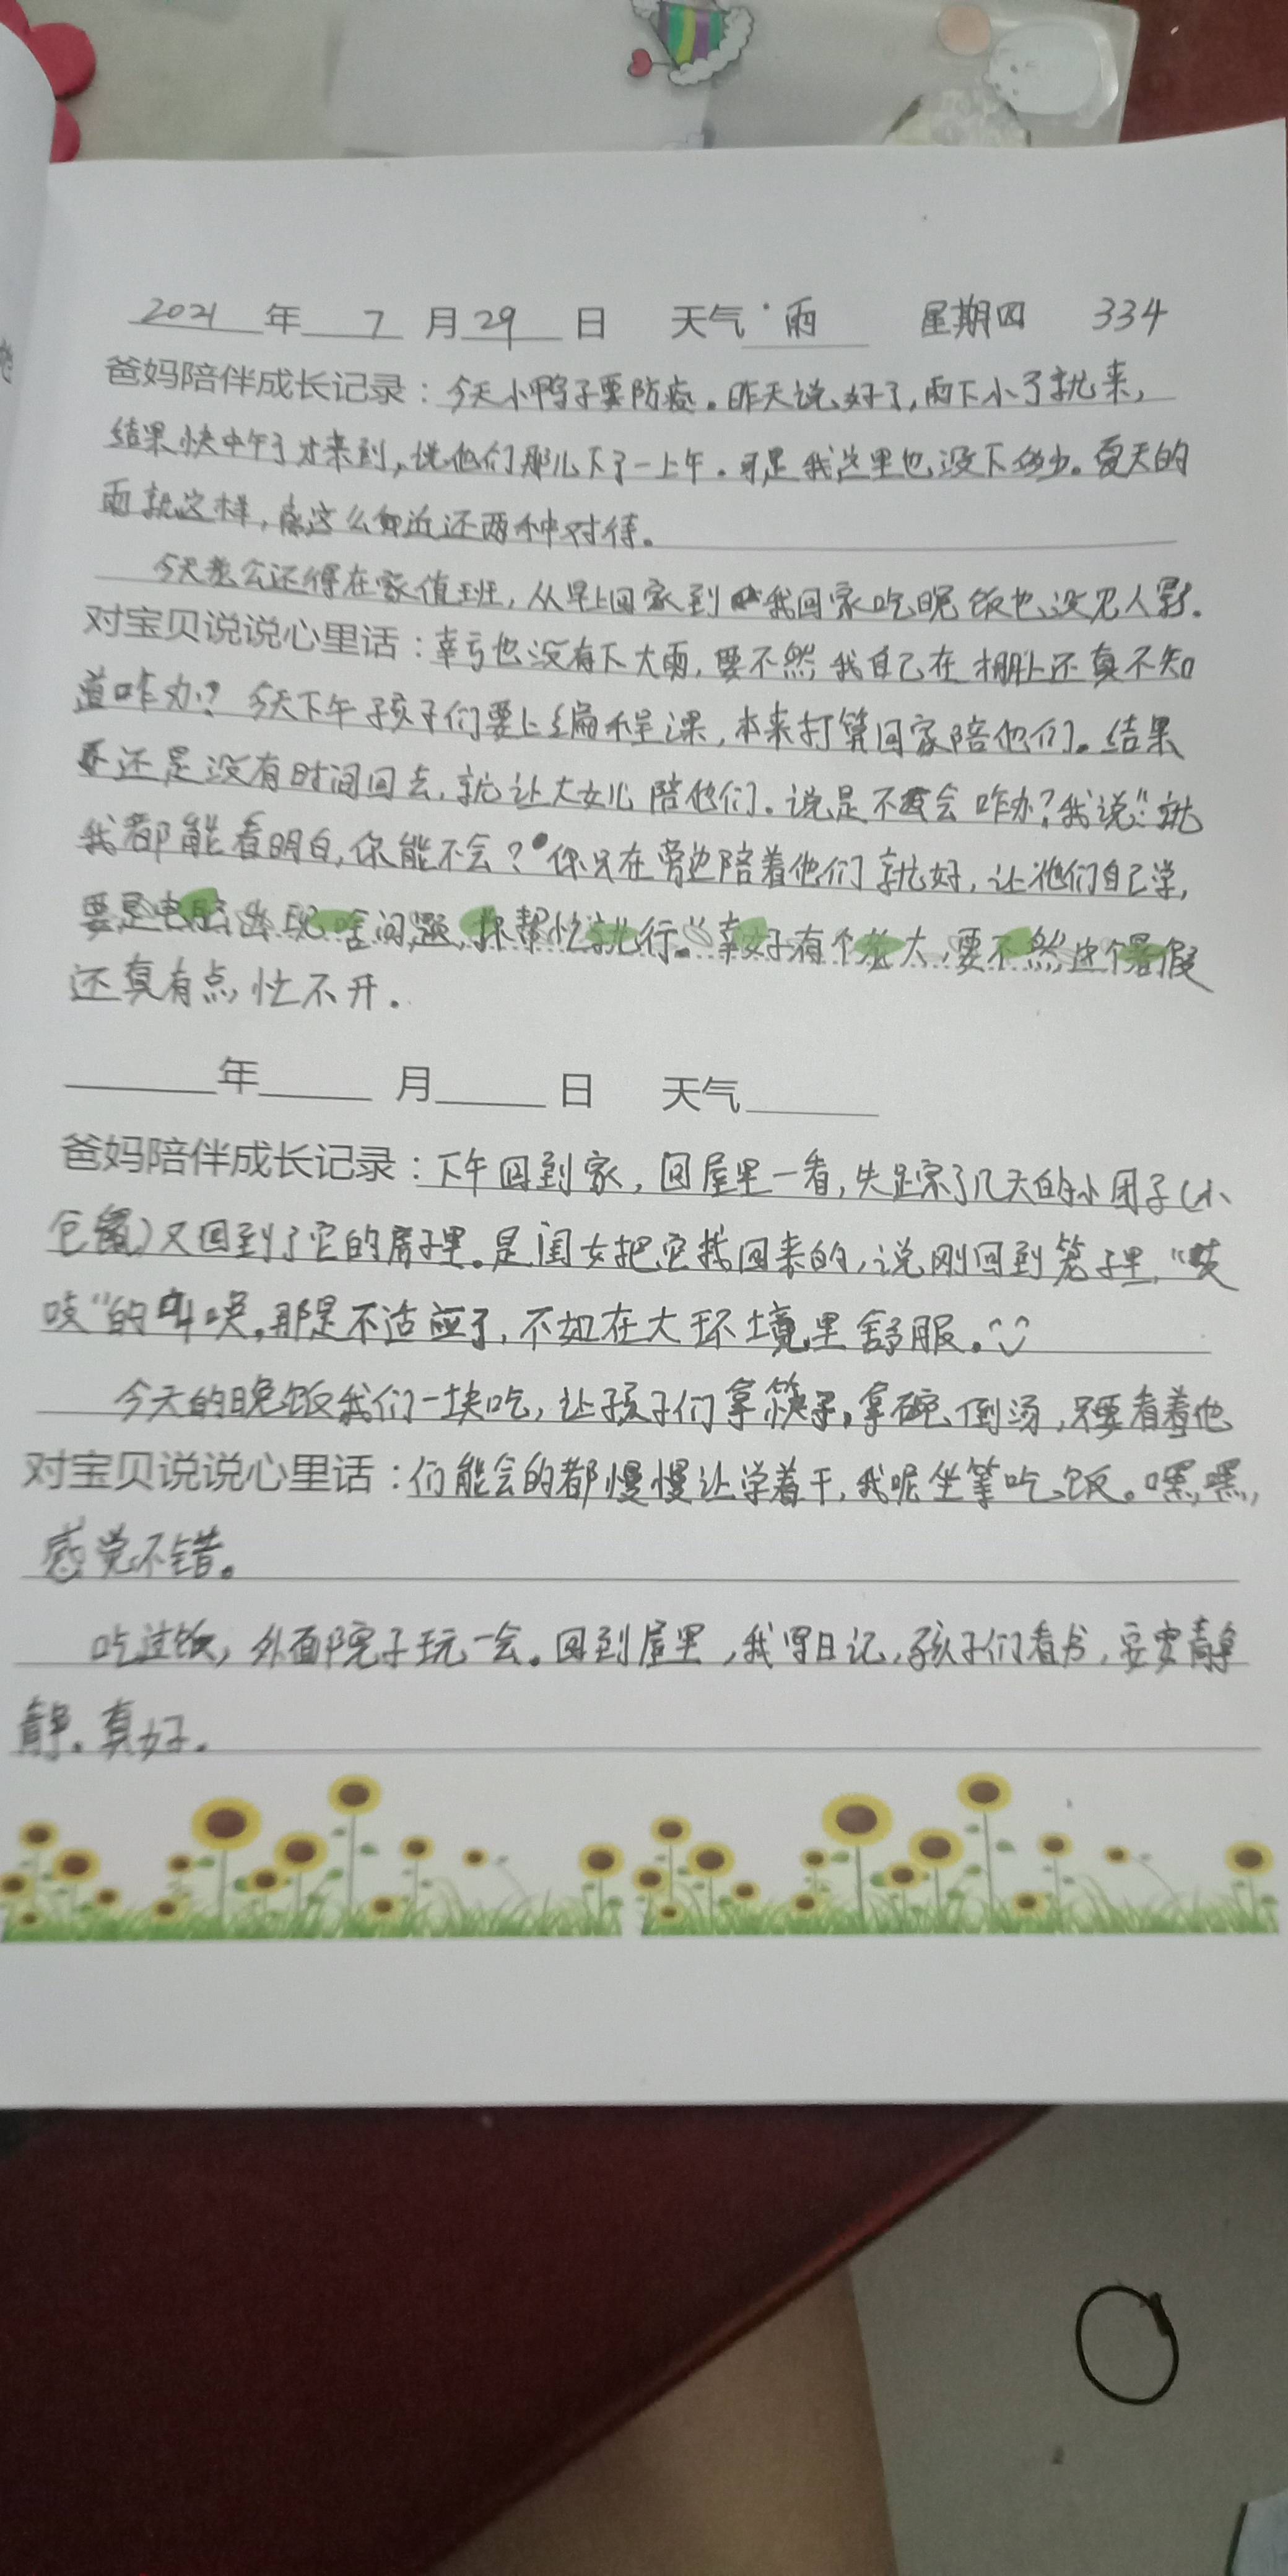 2021年 7月29日 天气 雨 星期四 334
爸妈陪伴成长记录：今天小鸭子要防疫。昨天说好了，雨下小了就来，
结果快中午了才来到，说他们那儿下了一上午。可是我这里也没下多少。夏天的
雨就这样，离这么邻近还两种对待。
今天老公还得在家值班，从早上回家到我回家吃晚饭也没见人影。
对宝贝说说心里话：幸亏也没有下大雨，要不然我自己在棚上还真不知
道咋办？今天下午孩子们要上编程课，本来打算回家陪他们。结果
还是没有时间回去，就让大女儿陪他们。说是不会咋办？我说："就
我都能看明白，你能不会？你只在旁边陪着他们就好，让他们自己学，
要是电脑出现啥问题，你帮忙就行。"幸好有个老大，要不然这个暑假
还真有点忙不开。
年 月 日 天气
爸妈陪伴成长记录：下午回到家，回屋里一看，失踪了几天的小团子（小
仓鼠）又回到了它的房子里。是闺女把它找回来的，说刚回到笼子里，"吱
吱"的叫唤。那是不适应了，不如在大环境里舒服。
今天的晚饭我们一块吃，让孩子们拿筷子，拿碗、倒汤，只要看着他
对宝贝说说心里话：们能会的都慢慢让学着干，我呢坐等吃饭。嘿，嘿，
感觉不错。
吃过饭，外面院子玩一会。回到屋里，我写日记，孩子们看书，安安静
静。真好。